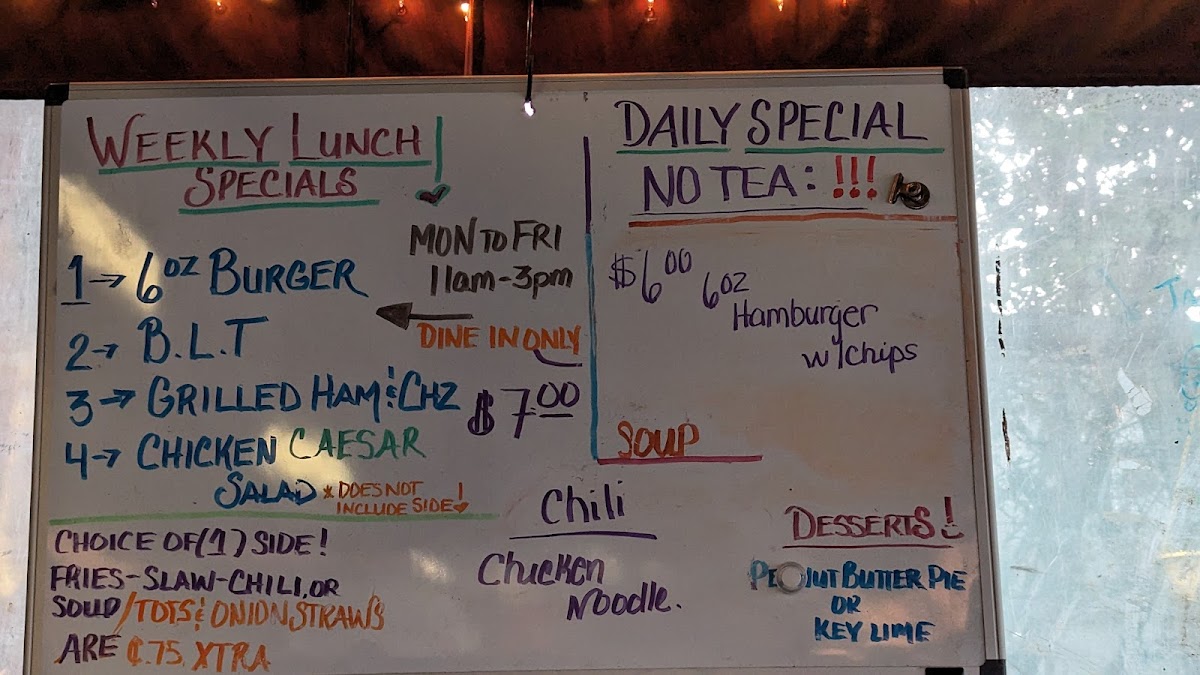 WEEKLY LUNCH!
SPECIALS
MON TO FRI
11am-3pm
DINE IN ONLY
1→ 6oz BURGER
2→ B.L.T
3→ GRILLED HAM & CHZ
$7.00
4→ CHICKEN CAESAR
SALAD * DOES NOT
INCLUDE SIDE!
CHOICE OF (1) SIDE!
FRIES-SLAW-CHILI, OR
SOUP/TOTS & ONION STRAWS
ARE ¢.75 XTRA
DAILY SPECIAL
NO TEA: !!!
$6.00 6oz
Hamburger
w/chips
SOUP
Chili
Chucken
Noodle.
DESSERTS!
PEANUT BUTTER PIE
OR
KEY LIME